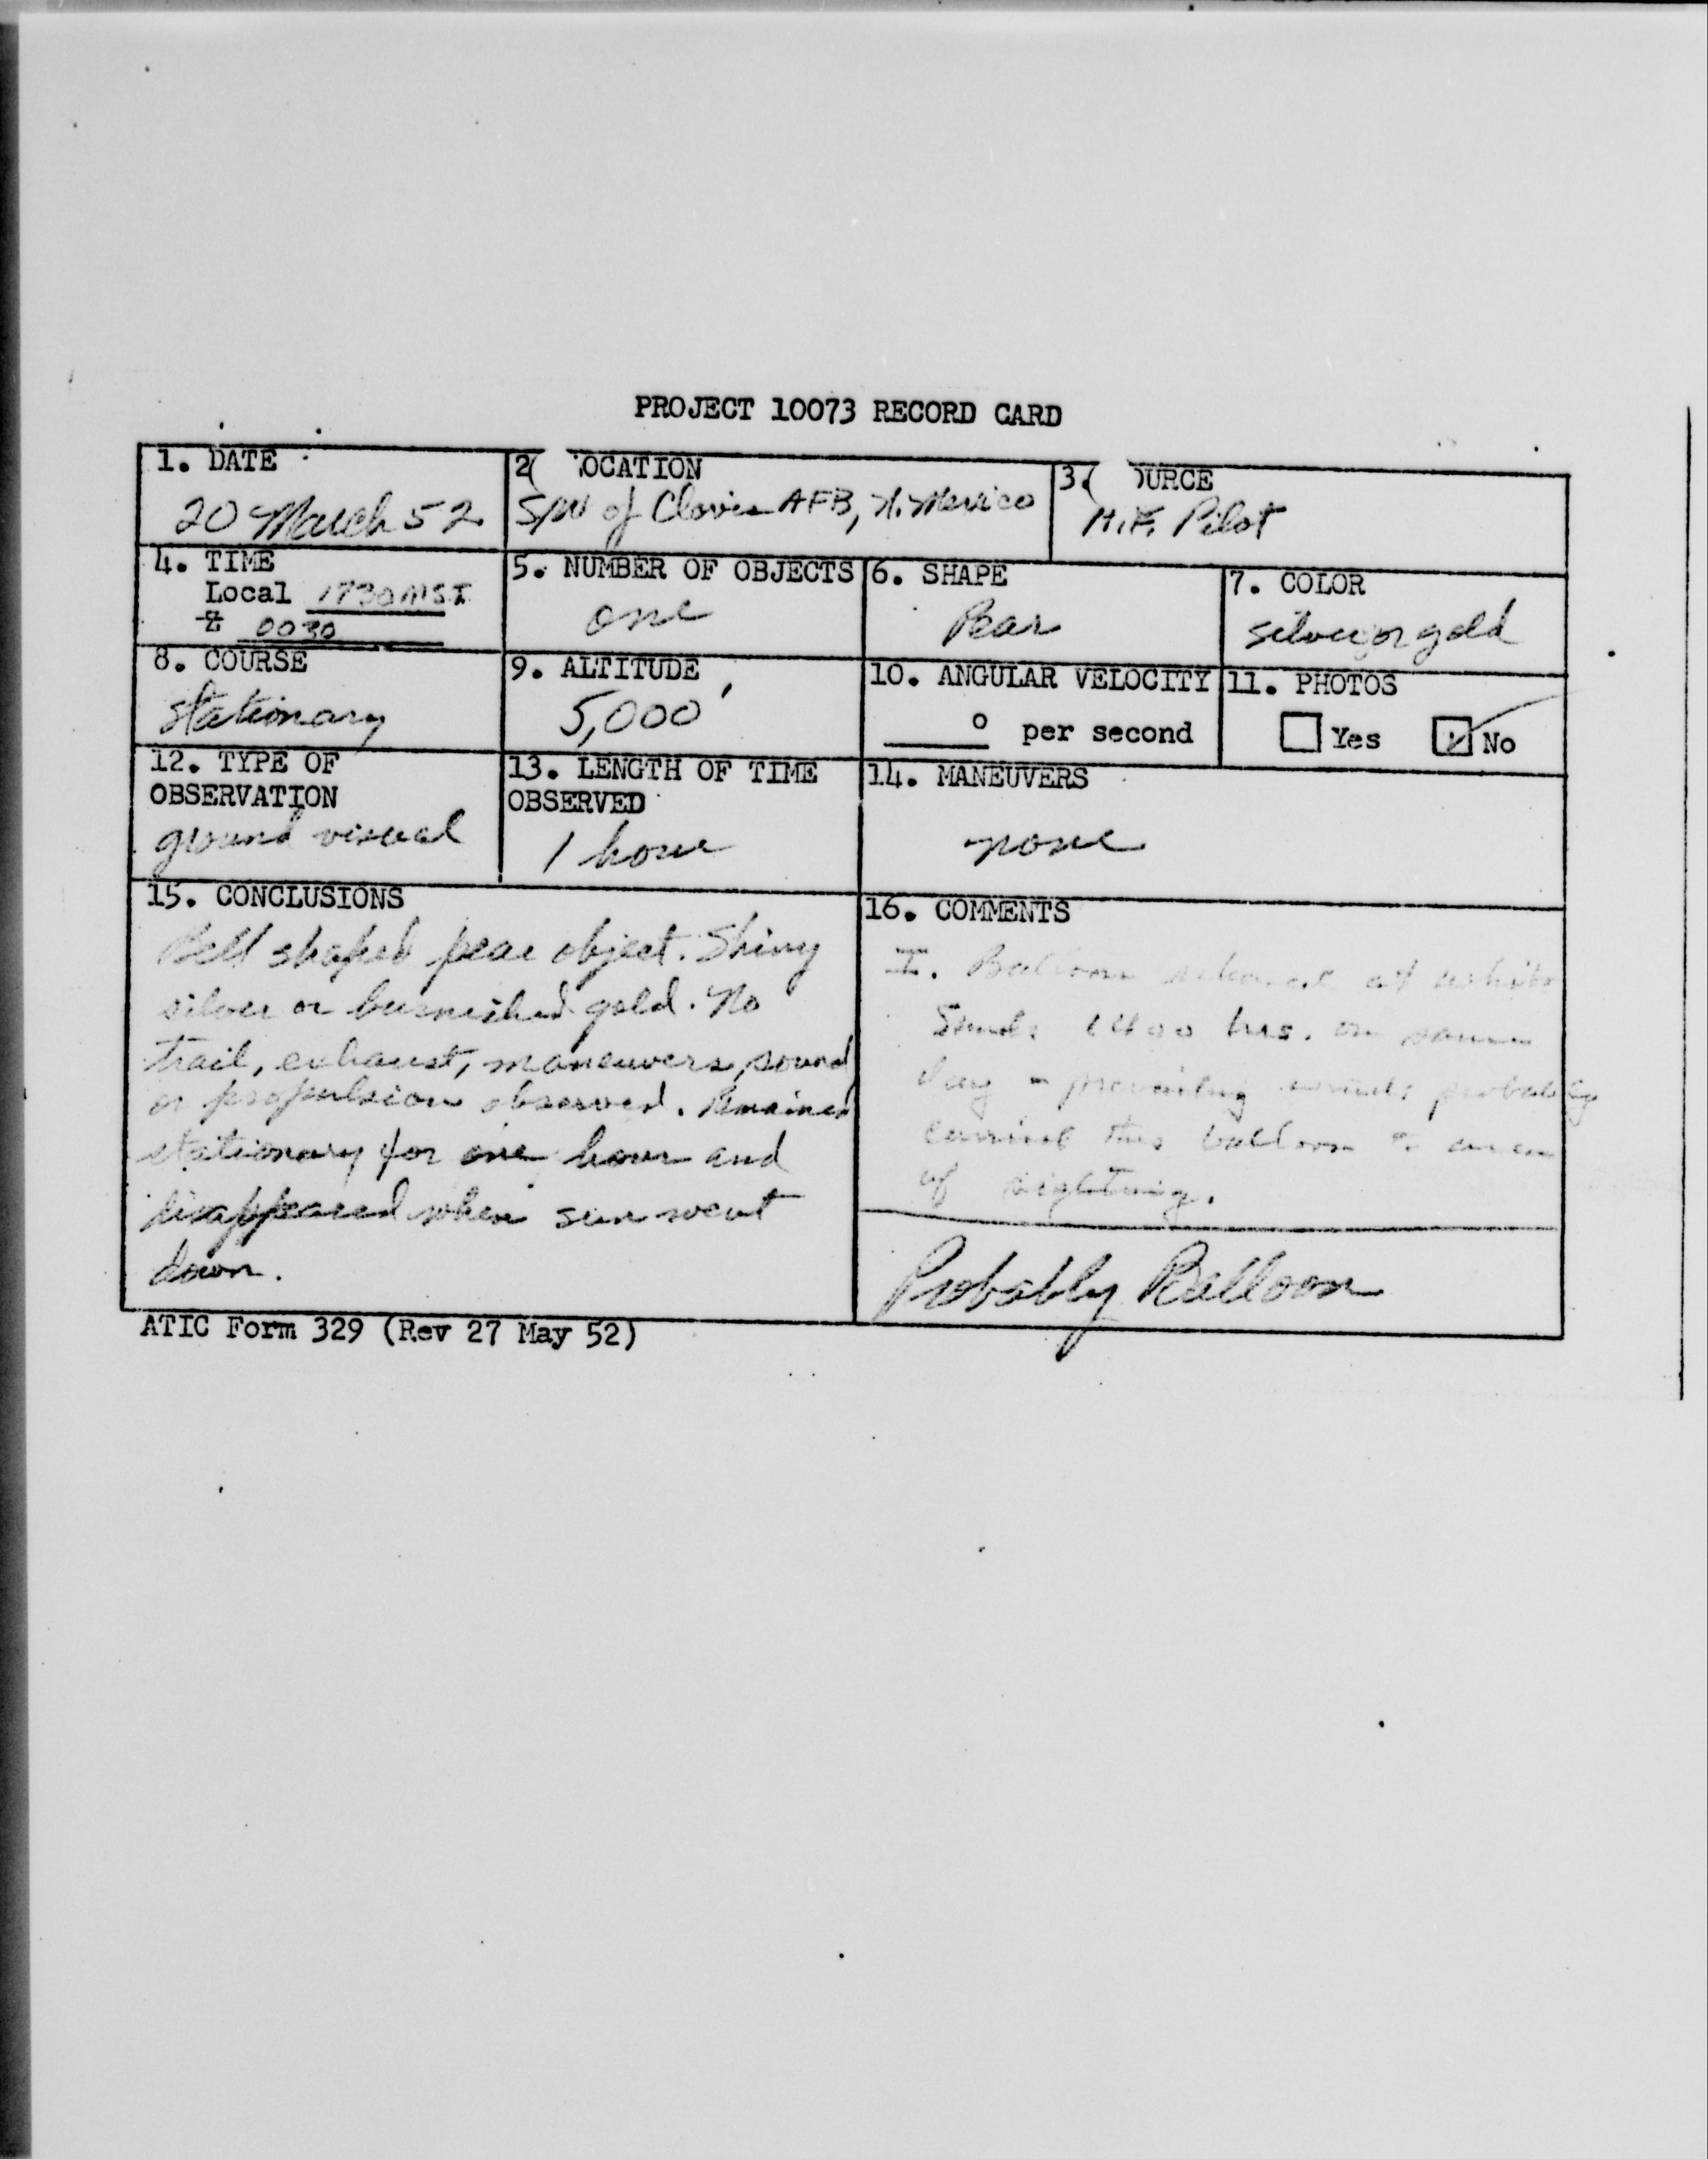 PROJECT 10073 RECORD CARD
1. DATE
20 March 52
2( OCATION
5 mi of Clovis AFB, N. Mexico
3( OURCE
A.F. Pilot
4. TIME
Local 1730 MST
Z 0030
5. NUMBER OF OBJECTS
one
6. SHAPE
Pear
7. COLOR
silver or gold
8. COURSE
stationary
9. ALTITUDE
5,000'
10. ANGULAR VELOCITY
° per second
11. PHOTOS
Yes No
12. TYPE OF
OBSERVATION
ground visual
13. LENGTH OF TIME
OBSERVED
1 hour
14. MANEUVERS
none
15. CONCLUSIONS
Bell shaped pear object. Shiny
silver or burnished gold. No
trail, exhaust, maneuvers, sound
or propulsion observed. Remained
stationary for one hour and
disappeared when sun went
down.
16. COMMENTS
I. Balloon released at White
Sands 1400 hrs. on same
day - prevailing winds probably
carried this balloon to area
of sighting.
Probably Balloon
ATIC Form 329 (Rev 27 May 52)